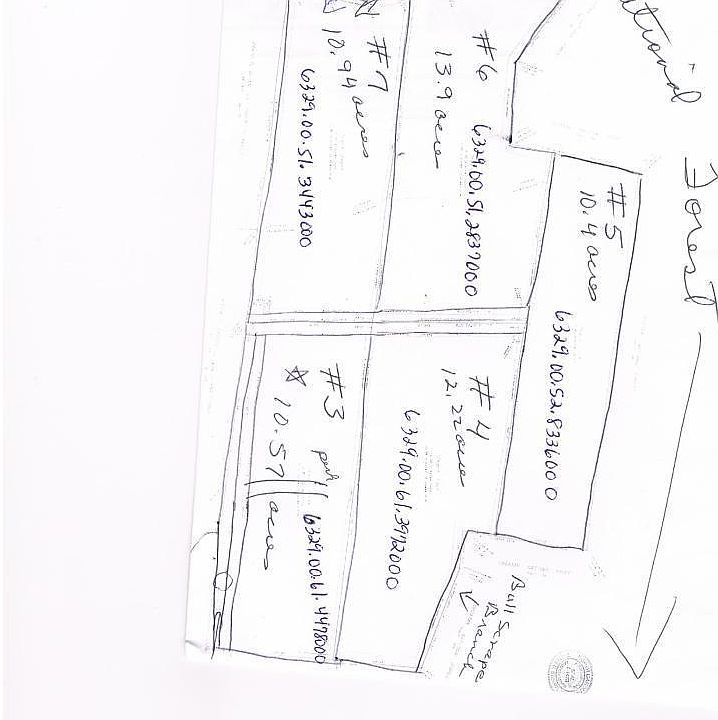 Forest
#5
10.4 acres
6329.00.52.8336000
#6
13.9 acre
6329.00.51.2837000
#7
10.94 acres
6329.00.51.3443000
#4
12.22 acre
6329.00.61.3972000
#3
10.57 acres
6329.00.61.4478000
Bull Scrape
Branch